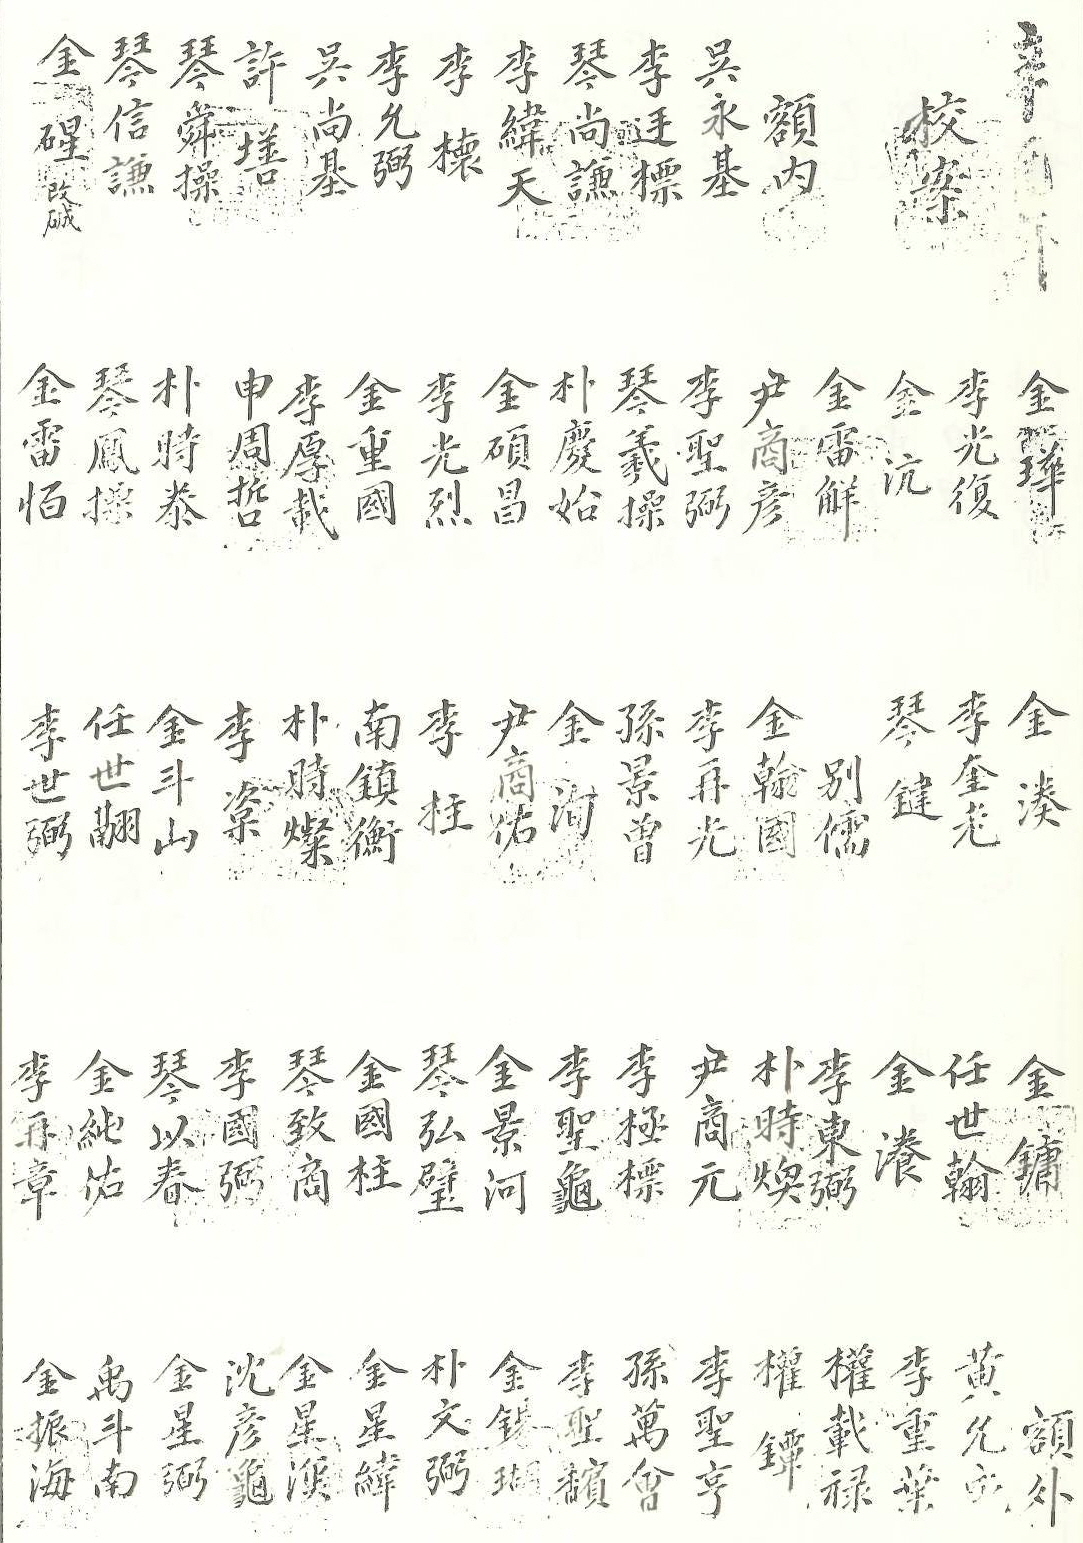 校案
額内
吳永基
李廷標
琴尚謙
李緯天
李 櫰
李允弼
吳尚基
許 𡏖
琴舜操
琴信謙
金 硾 改䂧
金 瑋
李光復
金 沆
金雷觧
尹商彦
李聖弼
琴羲操
朴慶始
金碩昌
李光烈
金重國
李厚載
申周哲
朴時泰
琴鳳操
金雷恒
金 湊
李奎老
琴 鍵
别儒
金翰國
李再光
孫景曾
金 洵
尹商佑
李 柱
南鎮衡
朴時燦
李 楶
金斗山
任世翮
李世弼
金 鏞
任世翰
金 瀁
李東弼
朴時煥
尹商元
李極標
李聖龜
金景河
琴弘璧
金國柱
琴致商
李國弼
琴以春
金純佑
李再章
額外
黄允
李重葉
權載禄
權 鐔
李聖亨
孫萬會
李聖馪
金錫瑚
朴文弼
金星緯
金星溟
沈彦龜
金星弼
禹斗南
金振海